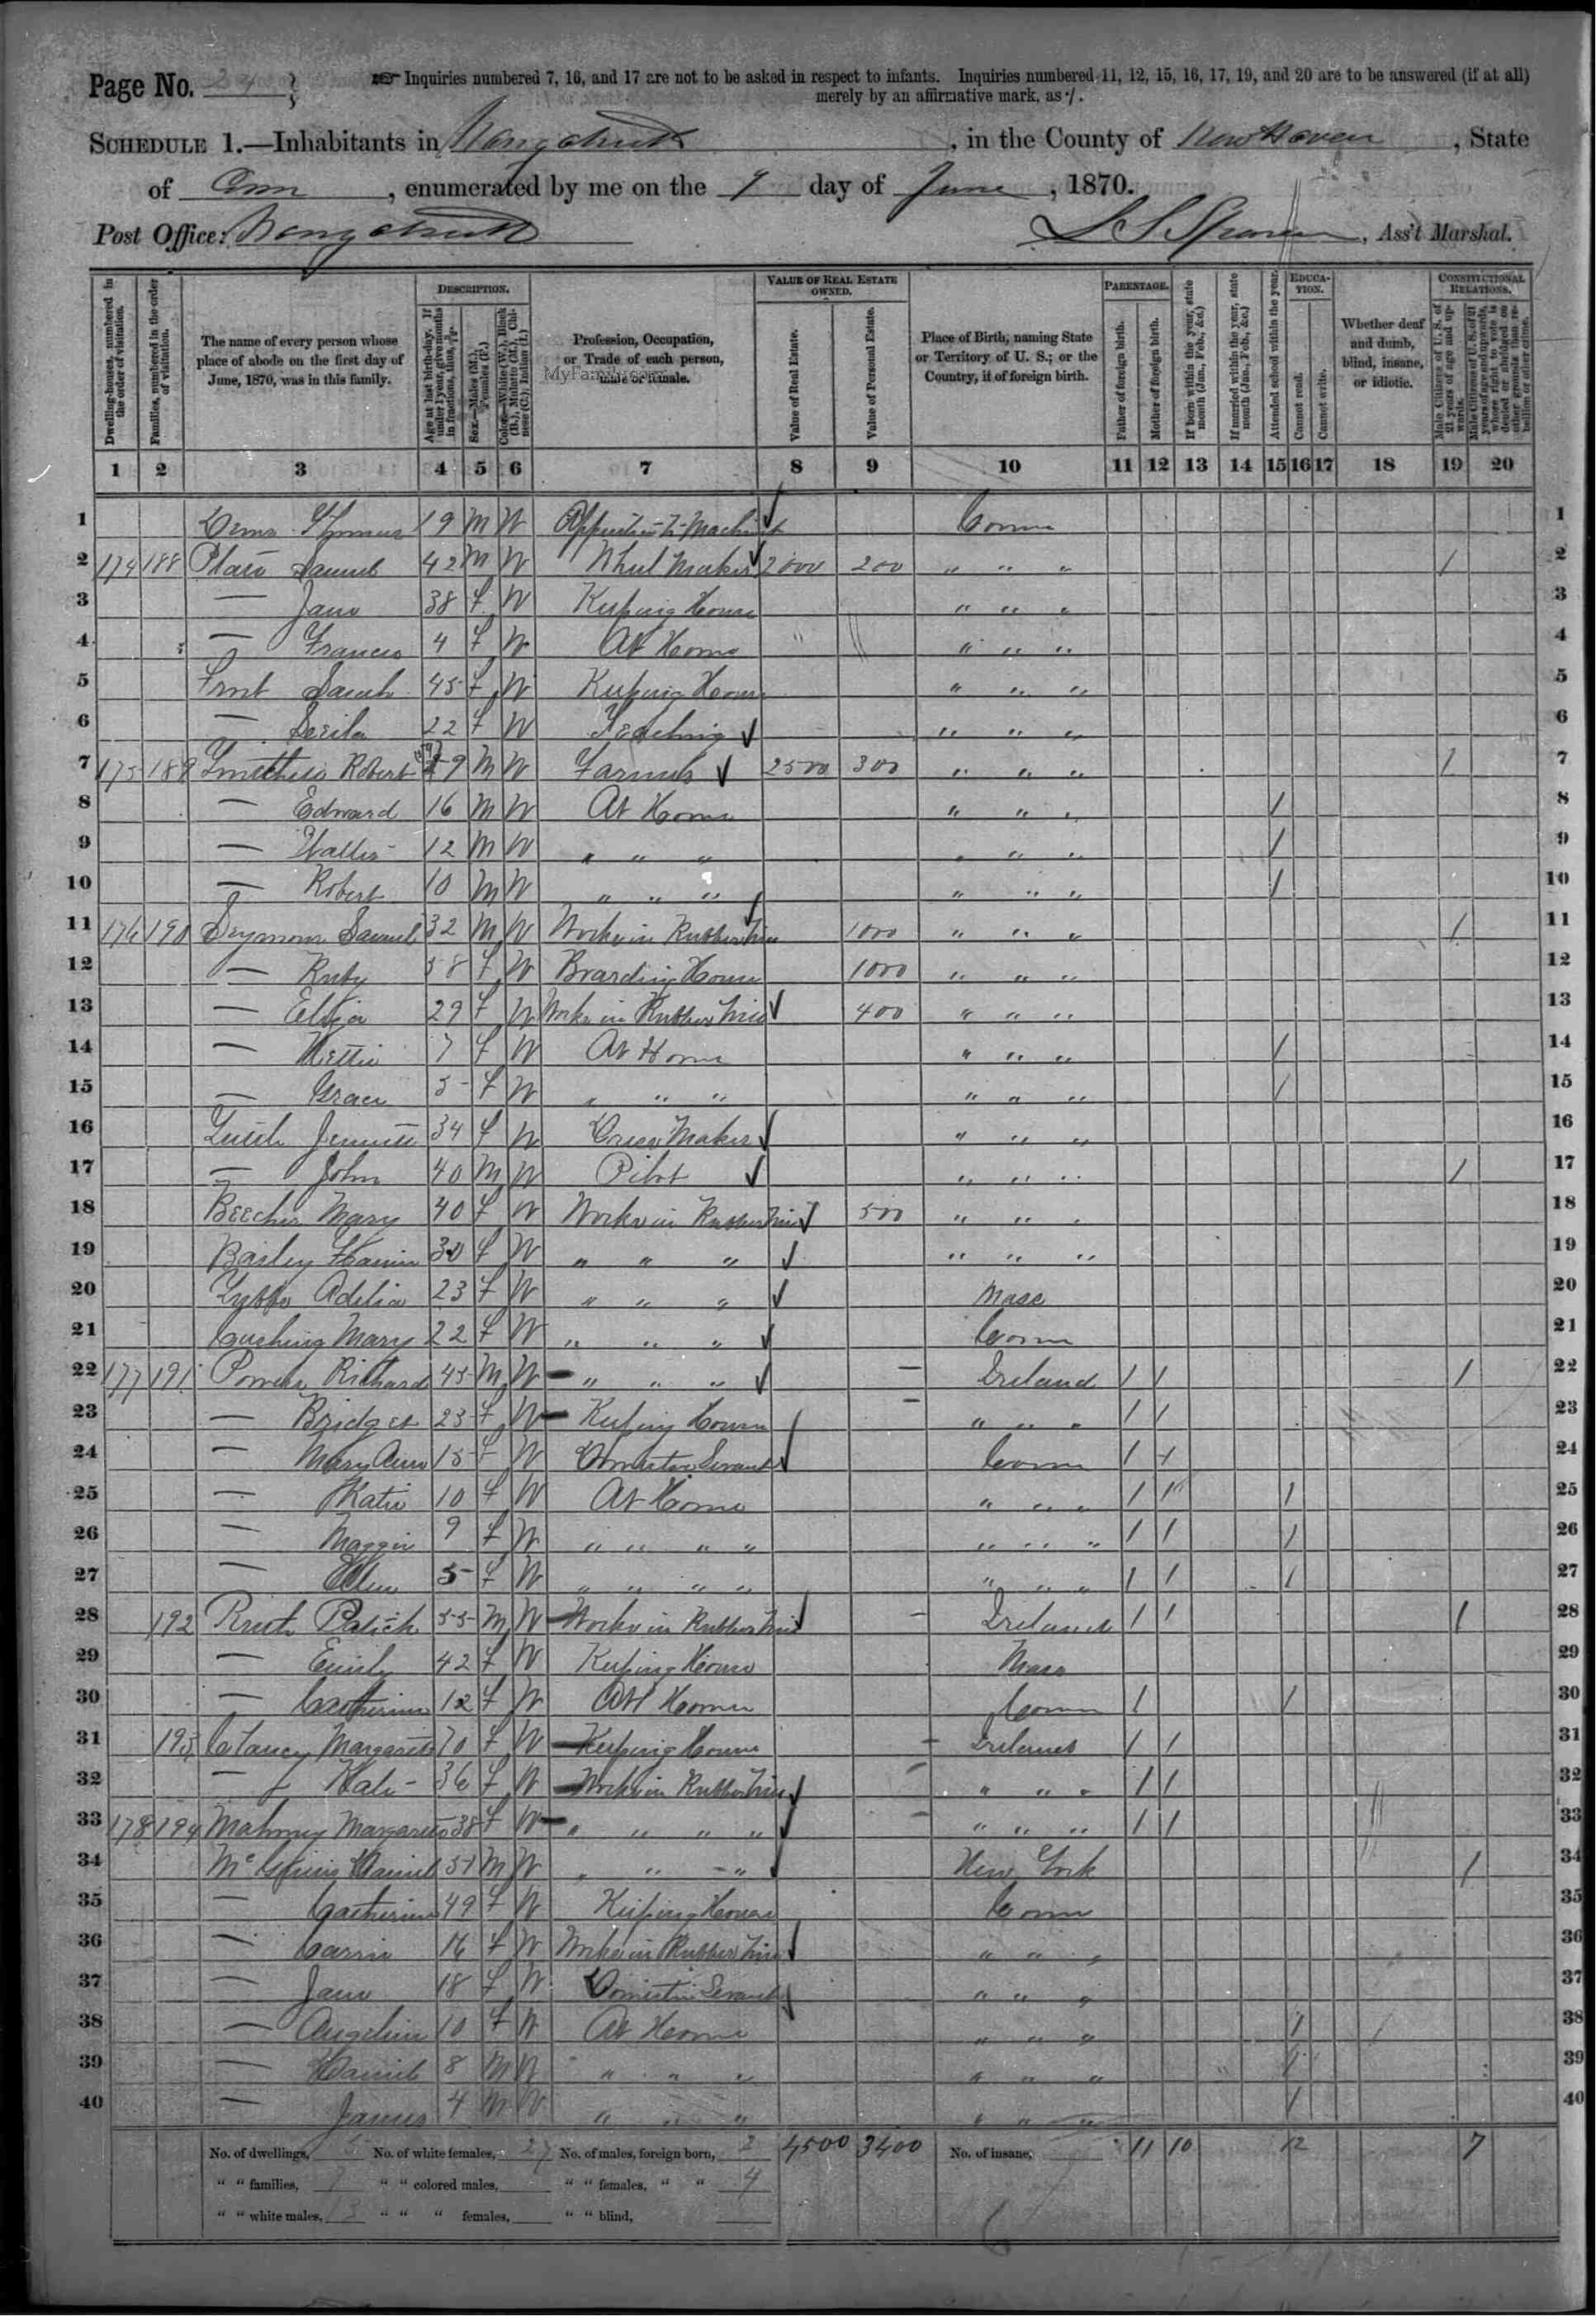 Page No. 24
Inquiries numbered 7, 16, and 17 are not to be asked in respect to infants. Inquiries numbered 11, 12, 15, 16, 17, 19, and 20 are to be answered (if at all)
merely by an affirmative mark, as /.
SCHEDULE 1.—Inhabitants in Naugatuck, in the County of New Haven, State
of Conn, enumerated by me on the 9 day of June, 1870.
Post Office: Naugatuck Ass't Marshal.
Dwelling-houses, numbered in the order of visitation.
Families, numbered in the order of visitation.
The name of every person whose place of abode on the first day of June, 1870, was in this family.
DESCRIPTION.
Age at last birth-day. If under 1 year, give months in fractions, thus, 3/12.
Sex.—Males (M.), Females (F.)
Color.—White (W.), Black (B.), Mulatto (M.), Chinese (C.), Indian (I.)
Profession, Occupation, or Trade of each person, male or female.
MyFamily.com
VALUE OF REAL ESTATE OWNED.
Value of Real Estate.
Value of Personal Estate.
Place of Birth, naming State or Territory of U. S.; or the Country, if of foreign birth.
PARENTAGE.
Father of foreign birth.
Mother of foreign birth.
If born within the year, state month (Jan., Feb., &c.)
If married within the year, state month (Jan., Feb., &c.)
Attended school within the year.
EDUCATION.
Cannot read.
Cannot write.
Whether deaf and dumb, blind, insane, or idiotic.
CONSTITUTIONAL RELATIONS.
Male Citizens of U. S. of 21 years of age and upwards.
Male Citizens of U. S. of 21 years of age and upwards, whose right to vote is denied or abridged on other grounds than rebellion or other crime.
1 2 3 4 5 6 7 8 9 10 11 12 13 14 15 16 17 18 19 20
1 Thomas 19 M W Conn 1
2 174 188 Samuel 42 M W 2000 200 " " " / 2
3 — Jane 38 F W Keeping House " " " 3
4 — Francis 4 F W At Home " " " 4
5 Sarah 45 F W Keeping House " " " 5
6 — 22 F W Teaching " " " 6
7 175 189 Robert M W Farmer 2500 300 " " " / 7
8 — Edward 16 M W At Home " " " / 8
9 — 12 M W " " " " " " / 9
10 — Robert 10 M W " " " " " " / 10
11 176 190 Seymour Samuel 32 M W Works in Rubber 1000 " " " / 11
12 — Ruby 58 F W Boarding House 1000 " " " 12
13 — Eliza 29 F W Works in Rubber 400 " " " 13
14 — Hettie 7 F W At Home " " " / 14
15 — Grace 5 F W " " " " " " / 15
16 34 F W Maker " " " 16
17 — John 40 M W Pilot " " " / 17
18 Beecher Mary 40 F W Works in Rubber 500 " " " 18
19 Bailey 30 F W " " " " " " 19
20 Adelia 23 F W " " " Mass 20
21 Cushing Mary 22 F W " " " Conn 21
22 177 191 Richard 45 M W " " " — Ireland / / / 22
23 — Bridget 23 F W Keeping House — " " " / / 23
24 — Mary Ann 15 F W Domestic Servant Conn / / 24
25 — Katie 10 F W At Home " " " / / / 25
26 — Maggie 9 F W " " " " " " " / / / 26
27 — Ellen 5 F W " " " " " " " / / / 27
28 192 Patick 55 M W Works in Rubber — Ireland / / / 28
29 — Emily 42 F W Keeping House Mass 29
30 — Catherine 12 F W At Home Conn / / 30
31 193 Clancy Margaret 70 F W Keeping House — Ireland / / 31
32 — Kate 36 F W Works in Rubber — " " " / / 32
33 178 194 Mahoney Margaret 38 F W " " " " — " " " / / 33
34 Daniel 51 M W " " " New York / 34
35 — Catherine 49 F W Keeping House Conn 35
36 — Carrie 16 F W Works in Rubber " " " 36
37 — Jane 18 F W Domestic Servant " " " 37
38 — Angeline 10 F W At Home " " " / 38
39 — Daniel 8 M W " " " " " " / 39
40 — James 4 M W " " " " " " / 40
No. of dwellings, 5 No. of white females, 27 No. of males, foreign born, 2 4500 3400 No. of insane, 11 10 12 7
" " families, 7 " " colored males, " " females, " " 4
" " white males, 13 " " " females, " " blind,